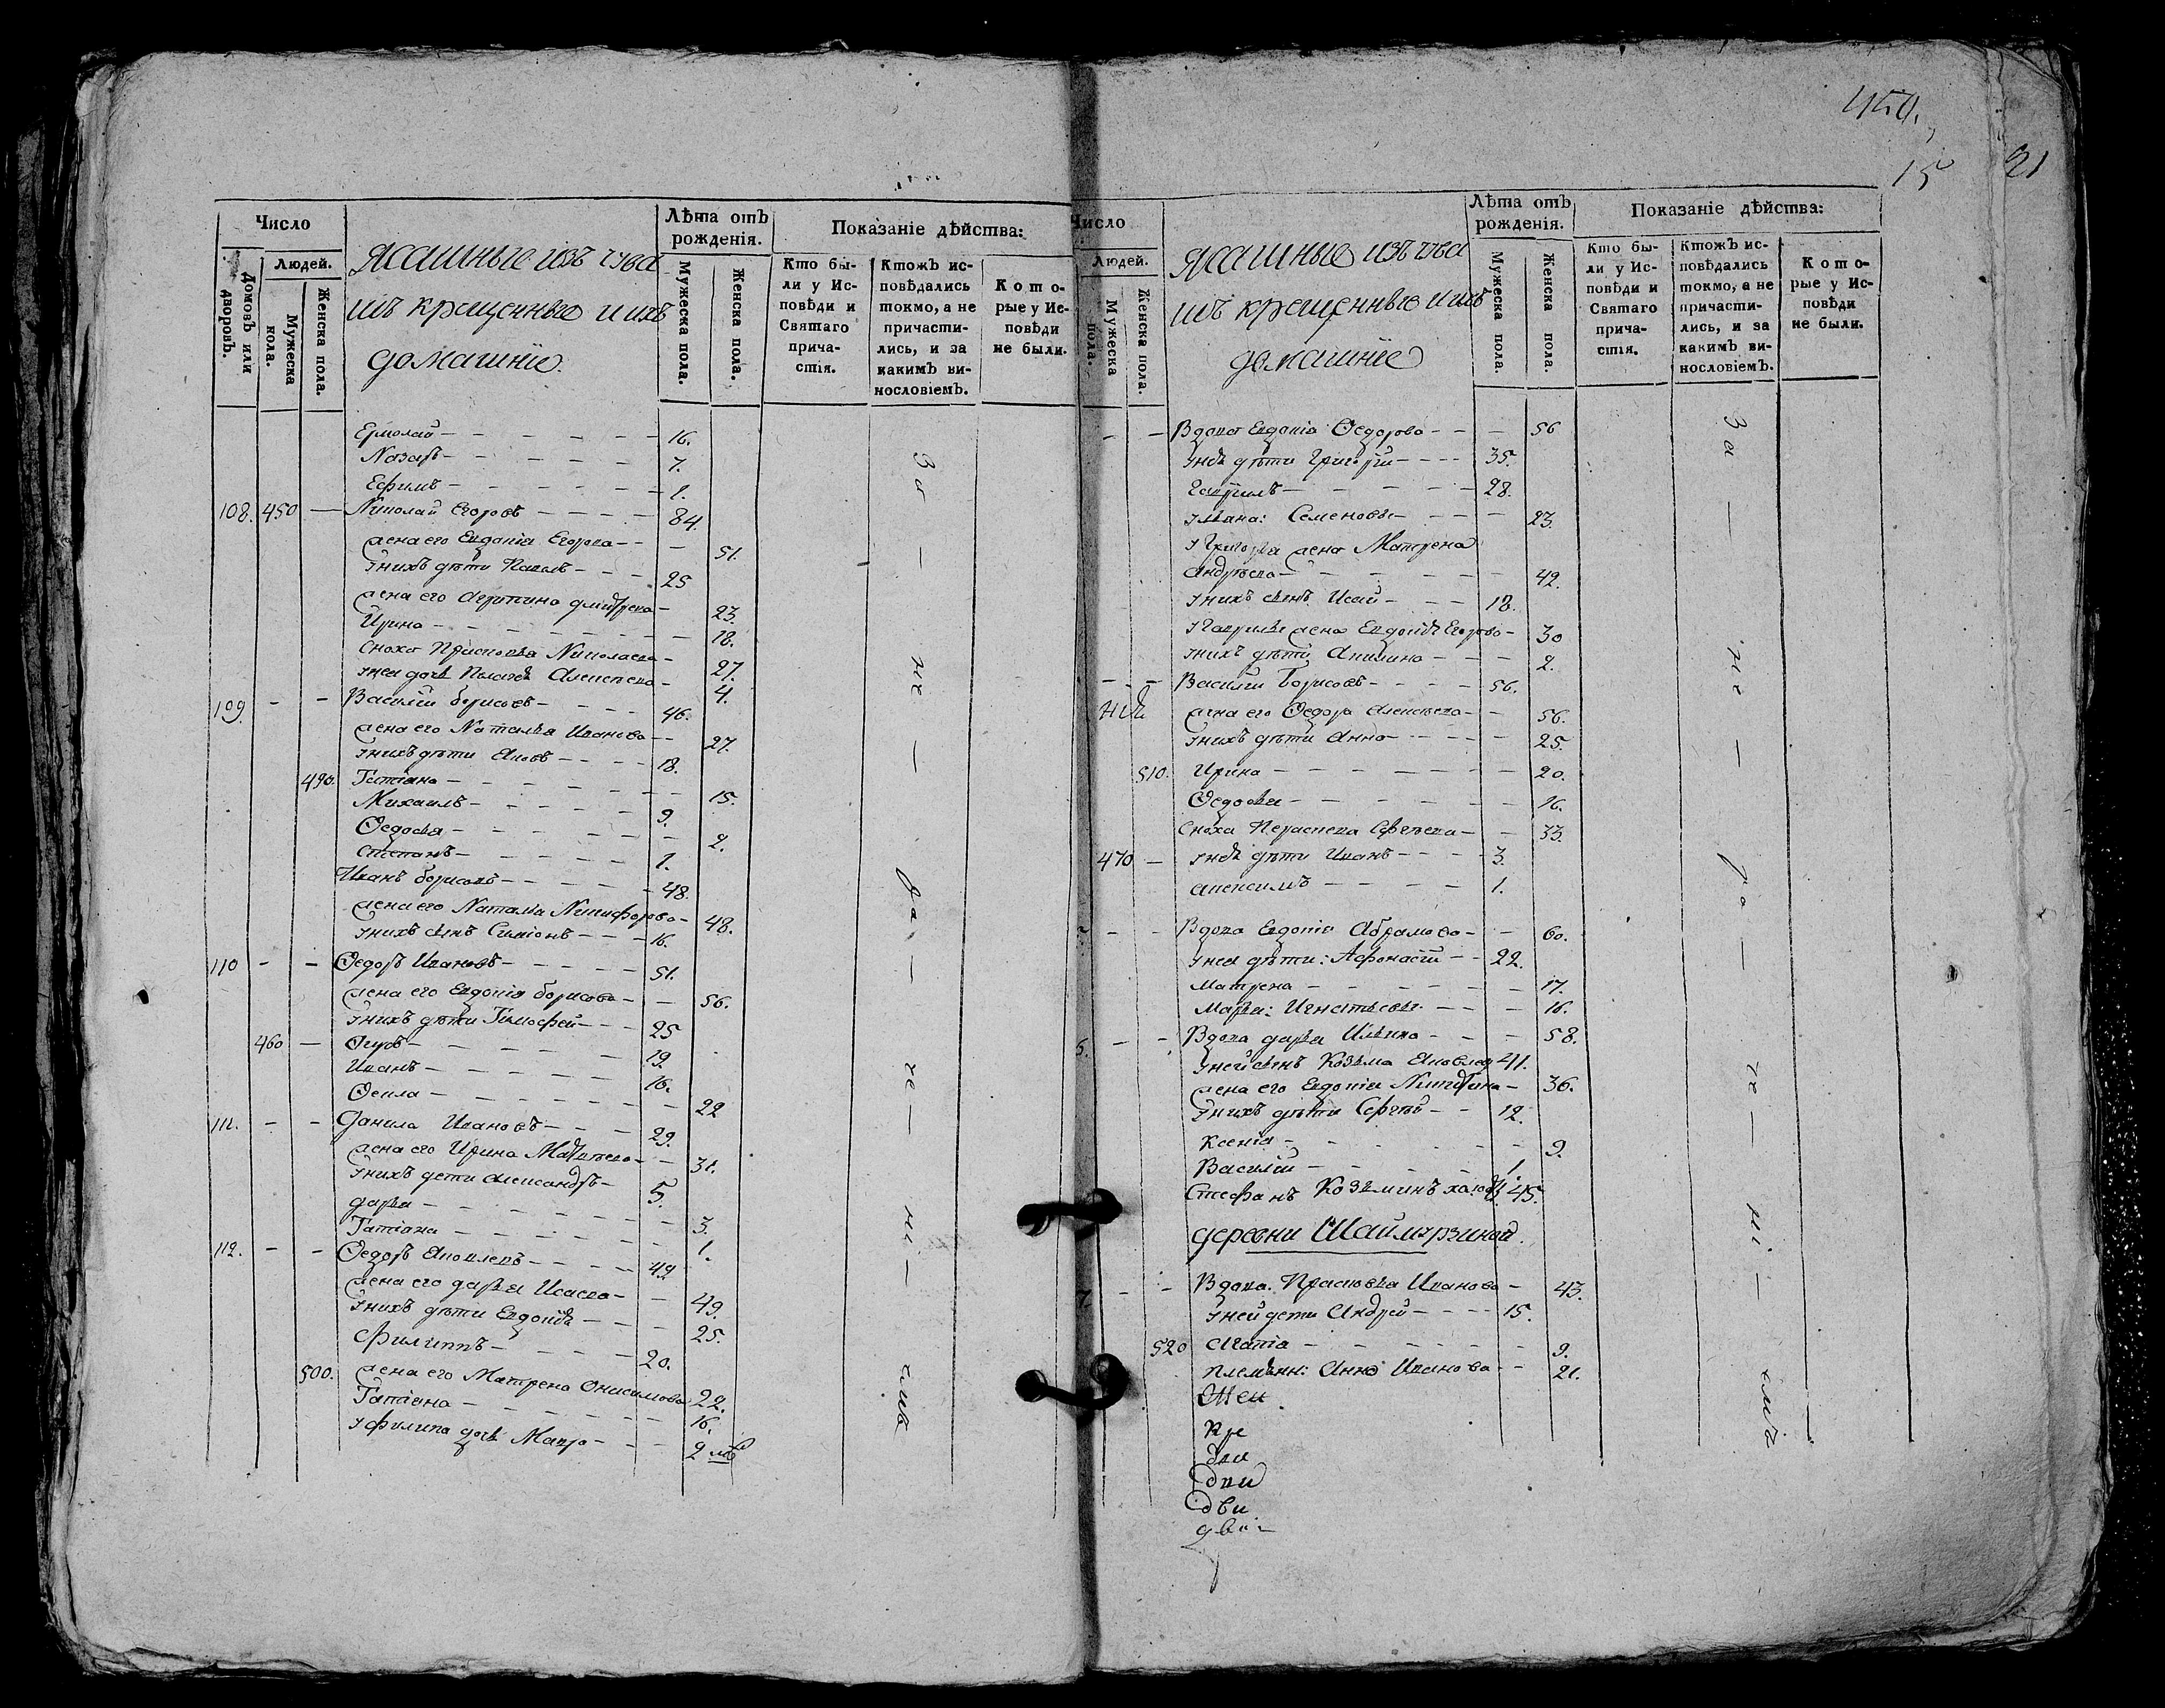 Число
Людей.
Домовъ или дворовъ.
Мужеска пола.
Женска пола.
Ясашные изъ чува
шъ крещенные и ихъ
домашнїе.
Лѣта отъ рожденія.
Мужеска пола.
Женска пола.
Показаніе дѣйства:
Кто бы-
ли у Ис-
повѣди и
Святаго
прича-
стія.
Ктожъ ис-
повѣдались
токмо, а не
причасти-
лись, и за
какимъ ви-
нословіемъ.
К о т о-
рые у Ис-
повѣди
не были.
Ермолай - 16.
Назаръ - 7.
Ефимъ - 1.
108. 450 — Николай Егоровъ - 84.
жена его Евдокіа Егорова - 51.
Унихъ дѣти Павелъ - 25
жена его Агрипина Дмитрева - 23.
Ирина - 18.
Сноха Прасковья Николаева - 27.
Унея дочь Алексеева - 4.
109. - - Василій Борисовъ - 46.
жена его Наталья Иванова - 27.
Унихъ дѣти Яковъ - 18.
490. Татіана - 15.
Михаилъ - 9.
Ѳедосья - 2.
Степанъ - 1.
Иванъ Борисовъ - 48.
жена его Наталья Никифорова - 48.
Унихъ сынъ Симіонъ - 16.
110 - - Ѳедоръ Ивановъ - 51.
жена его Евдокія Борисова - 56.
Унихъ дѣти Тимофей - 25
460 — - 19.
Иванъ - 16.
Ѳекла - 22
111. - - Данила Ивановъ - 29.
жена его Ирина Матвеева - 31.
Унихъ дети Александръ - 5.
Дарья - 3.
Татіана - 1.
112. - - Ѳедоръ Яковлевъ - 49.
жена его Дарья Исаева - 49.
Унихъ дѣти Евдокіа - 25.
Филиппъ - 20.
500. жена его Матрена Онисимова 22.
Татіана - 16.
У Филипа дочь Мавра - 2 м
За — не — — —
450.
15
21
Число
Людей.
Мужеска пола.
Женска пола.
Ясашные изъ чува
шъ крещенные и ихъ
домашнїе
Лѣта отъ
рожденія.
Мужеска пола.
Женска пола.
Показаніе дѣйства:
Кто бы-
ли у Ис-
повѣди и
Святаго
прича-
стія.
Ктожъ ис-
повѣдались
токмо, а не
причасти-
лись, и за
какимъ ви-
нословіемъ.
К о т о-
рые у Ис-
повѣди
не были.
- - Вдова Евдокіа Ѳедорова - 56
Унеѣ дѣти Григорїй - 35.
Гаврилъ - 28.
Семеновы - 23.
У Григорья жена Матрена
Андрѣева - 42.
Унихъ сынъ Исай - 18.
У Гаврилы жена Евдокіа Егорова - 30
Унихъ дѣти Акилина - 2.
- - Василїй Борисовъ - 56.
жена его Ѳедора Алексѣева - 56.
Унихъ дѣти Анна - 25.
510. Ирина - 20.
Ѳедосья - 16.
Сноха - 33.
470 — Унеѣ дѣти Иванъ - 3.
- 1.
- - Вдова Евдокія Абрамова - 60.
Унея дѣти: Афонасій - 22.
Матрена - 17.
Марья: Игнатьевы - 16.
- - Вдова Дарья Ильина - 58.
Уней сынъ Козьма Яковлев 41.
жена его Евдокія Никитина - 36.
Унихъ дѣти Сергѣй - 12.
Ксенія - 9.
Василїй - 1.
Стефанъ Козьминъ 45.
Деревни Шаймурзиной.
- - Вдова Прасковья Иванова - 43.
Уней дети Андрей - 15.
520 Агапіа - 9.
Племѣнн: Анна Иванова - 21.
дви
За — не — — —